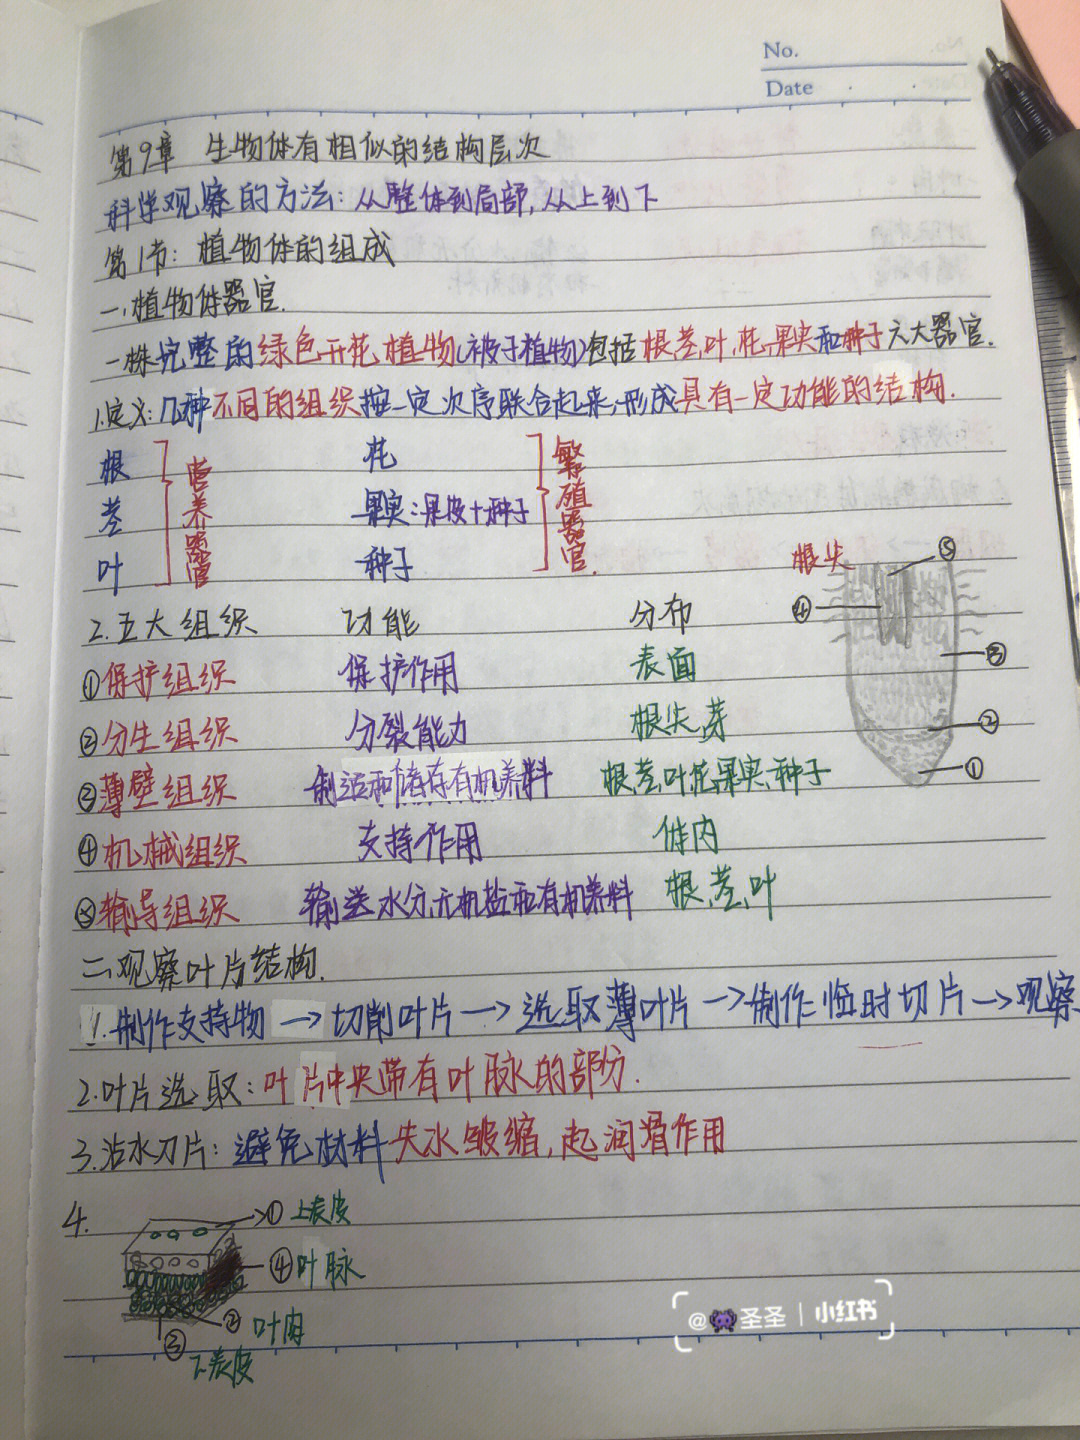 No.
Date
第9章 生物体有相似的结构层次
科学观察的方法:从整体到局部,从上到下
第1节:植物体的组成
一、植物体器官.
一株完整的绿色开花植物(被子植物)包括根、茎、叶、花、果实和种子六大器官.
1.定义:几种不同的组织按一定次序联合起来,形成具有一定功能的结构.
根 花
茎 营养器官 果实:果皮+种子 繁殖器官.
叶 种子
根尖 ⑤
④
③
②
①
2.五大组织 功能 分布
①保护组织 保护作用 表面
②分生组织 分裂能力 根尖、芽
③薄壁组织 制造和储存有机养料 根、茎、叶、花、果实、种子
④机械组织 支持作用 体内
⑤输导组织 输送水分、无机盐和有机养料 根、茎、叶
二、观察叶片结构.
1.制作支持物→切削叶片→选取薄叶片→制作临时切片→观察
2.叶片选取:叶片中央带有叶脉的部分.
3.沾水刀片:避免材料失水皱缩,起润滑作用
4.
①上表皮
④叶脉
②叶肉
③下表皮
@圣圣 | 小红书